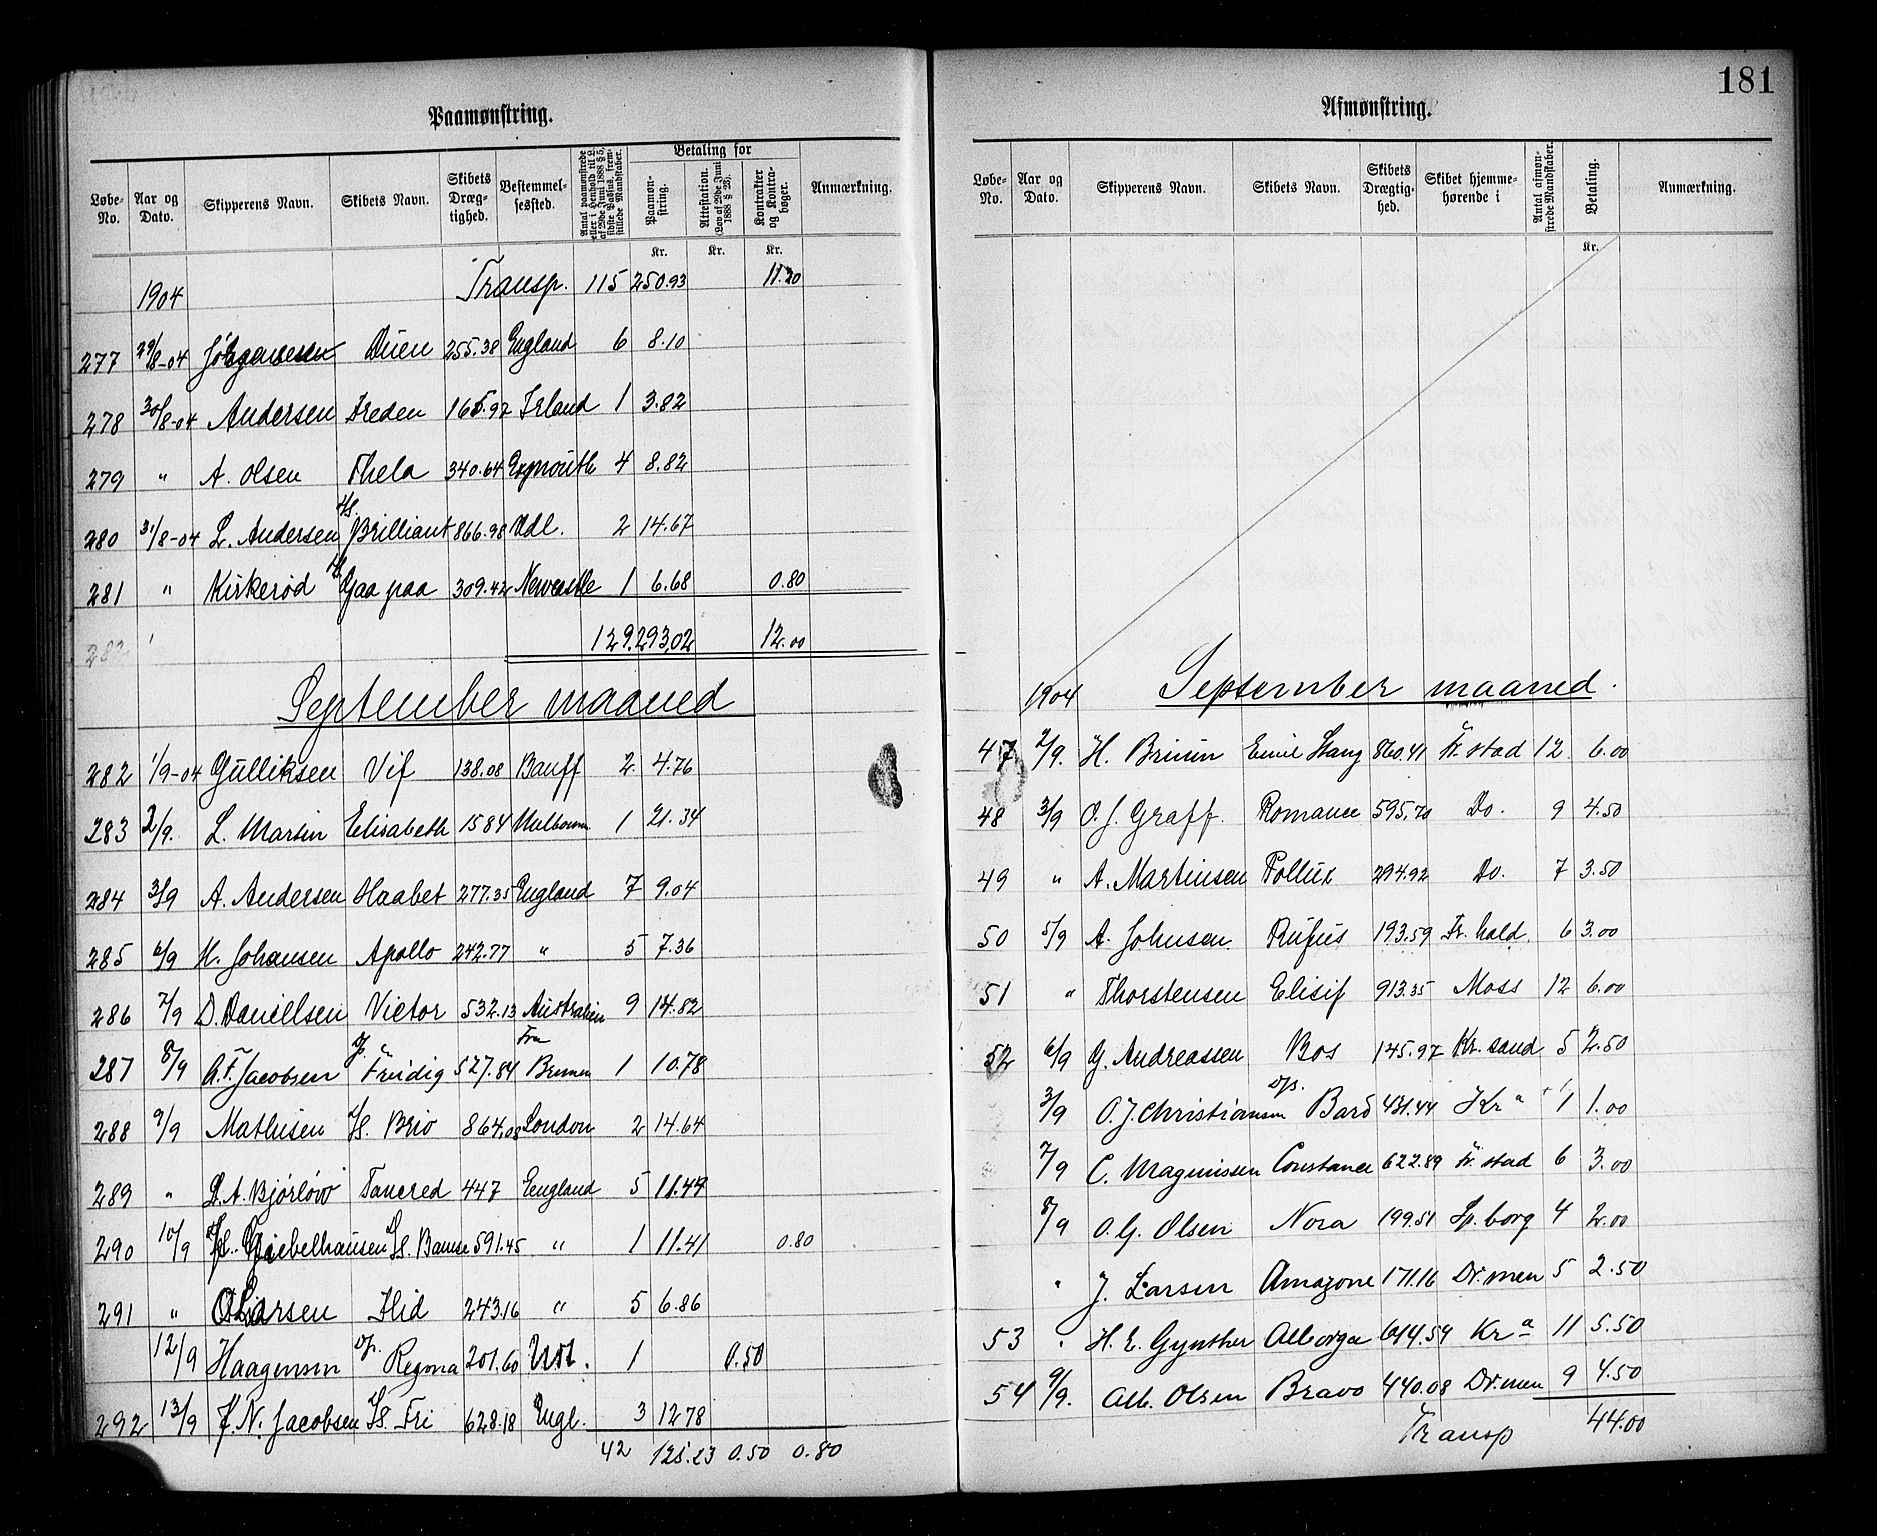 181
Paamønstring.
Løbe-No. Aar og Dato. Skipperens Navn. Skibets Navn. Skibets Dræg-tighed. Bestemmel-sessted. Antal paamønstrede eller i Henhold til L. af 29de Juni 1888 § 5, sidste Passus, frem-stillede Mandskaber. Betaling for Paamøn-string. Attestation. (Lov af 29de Juni 1888 § 28). Kontrakter og Kontra-bøger. Anmærkning.
Kr. Kr. Kr.
1904 Transp. 115 250.93 11.20
277 29/8-04 Jørgensen Duen 255.38 England 6 8.10
278 30/8-04 Andersen Freden 165.92 Irland 1 3.82
279 " A. Olsen Thela 340.64 Exmouth 4 8.82
280 31/8-04 L. Andersen S/S. Brilliant 866.98 Udl. 2 14.67
281 " Kirkerød Gaa paa 309.42 Newcastle 1 6.68 0.80
282 129. 293,02 12.00
September maaned
282 1/9-04 Gulliksen Vif 138.08 Banff 2 4.76
283 2/9. L. Martin Elisabeth 1584 Melbourn 1 21.34
284 3/9 A. Andersen Haabet 277.35 England 7 9.04
285 6/9 H. Johansen Apollo 242.77 " 5 7.36
286 7/9 D. Danielsen Victor 532.13 Australien 9 14.82
287 8/9 A. F. Jacobsen D/p. Freidig 527.84 Fra Bremen 1 10.78
288 9/9 Mathisen S/S. Brio 864,08 London 2 14.64
289 " L. A. Bjørløw Tancred 447 England 5 11.44
290 10/9 Giebelhausen S/S. Bamse 591.45 " 1 11.41 0.80
291 " O. Larsen Hid 243.16 " 5 6.86
12/9 Haagensen D/p. Regma 201.60 Udl. 1 0.50
292 13/9 J. N. Jacobsen S/S. Fri 628.18 Engl. 3 12 78
42 125.23 0.50 0.80
Afmønstring.
Løbe-No. Aar og Dato. Skipperens Navn. Skibets Navn. Skibets Drægtig-hed. Skibet hjemme-hørende i Antal afmøn-strede Mandskaber. Betaling. Anmærkning.
Kr.
1904 September maaned.
47 2/9. H. Bruun Emil Stang 860.41 Fr. stad 12 6.00
48 3/9 O. J. Graff. Romance 595,70 Do. 9 4.50
49 " A. Martinsen Pollux 294.92 Do. 7 3.50
50 5/9 A. Johnsen Rufus 193.59 Fr. hald. 6 3.00
51 " Thorstensen Elisif 913.35 Moss 12 6.00
52 6/9 G. Andreassen Bos 145.97 Kr. sand 5 2.50
3/9 O. J. Christiansen D/p. Bard 431.44 Kr a 1 1.00
7/9 C. Magnussen Constance 622.89 Fr. stad 6 3.00
8/9 O. G. Olsen Nora 199.51 Sp. borg 4 2.00
" J. Larsen Amazone 171.16 Dr. men 5 2.50
53 " H. E. Gynther Alborga 644.54 Kr a 11 5.50
54 9/9. Alb. Olsen Bravo 440.08 Dr. men 9 4.50
Transp 44.00